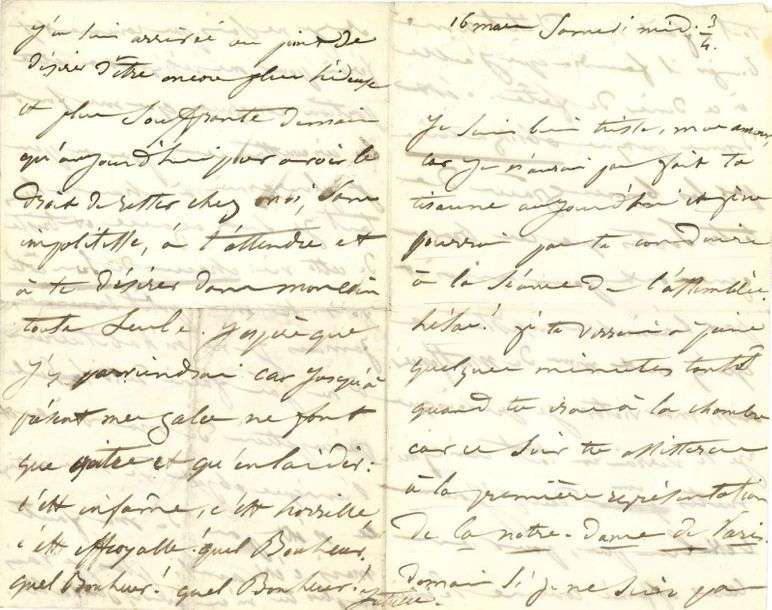 16 mars Samedi midi. 3/4.
Je suis bien triste, mon amour,
car je n'aurai pas fait ta
tisanne aujourd'hui et je ne
pourrai pas te conduire
à la séance de l'assemblée.
hélas! je te verrai à peine
quelques minutes tantôt
quand tu iras à la chambre
car ce soir tu assisteras
à la première représentation
de la notre-dame de Paris.
Demain si je ne suis pas
J'en suis arrivée au point de
désirer d'être encore plus hideuse
et plus souffrante demain
qu'aujourd'hui pour avoir le
droit de rester chez moi, sans
impolitesse, à t'attendre et
à te désirer dans mon coin
toute seule. J'espère que
j'y parviendrai car jusqu'à
présent mes gales ne font
que et qu'enlaidir:
c'est infâme, c'est horrible
c'est effroyable! quel Bonheur!
quel Bonheur! quel Bonheur!
Juliette.